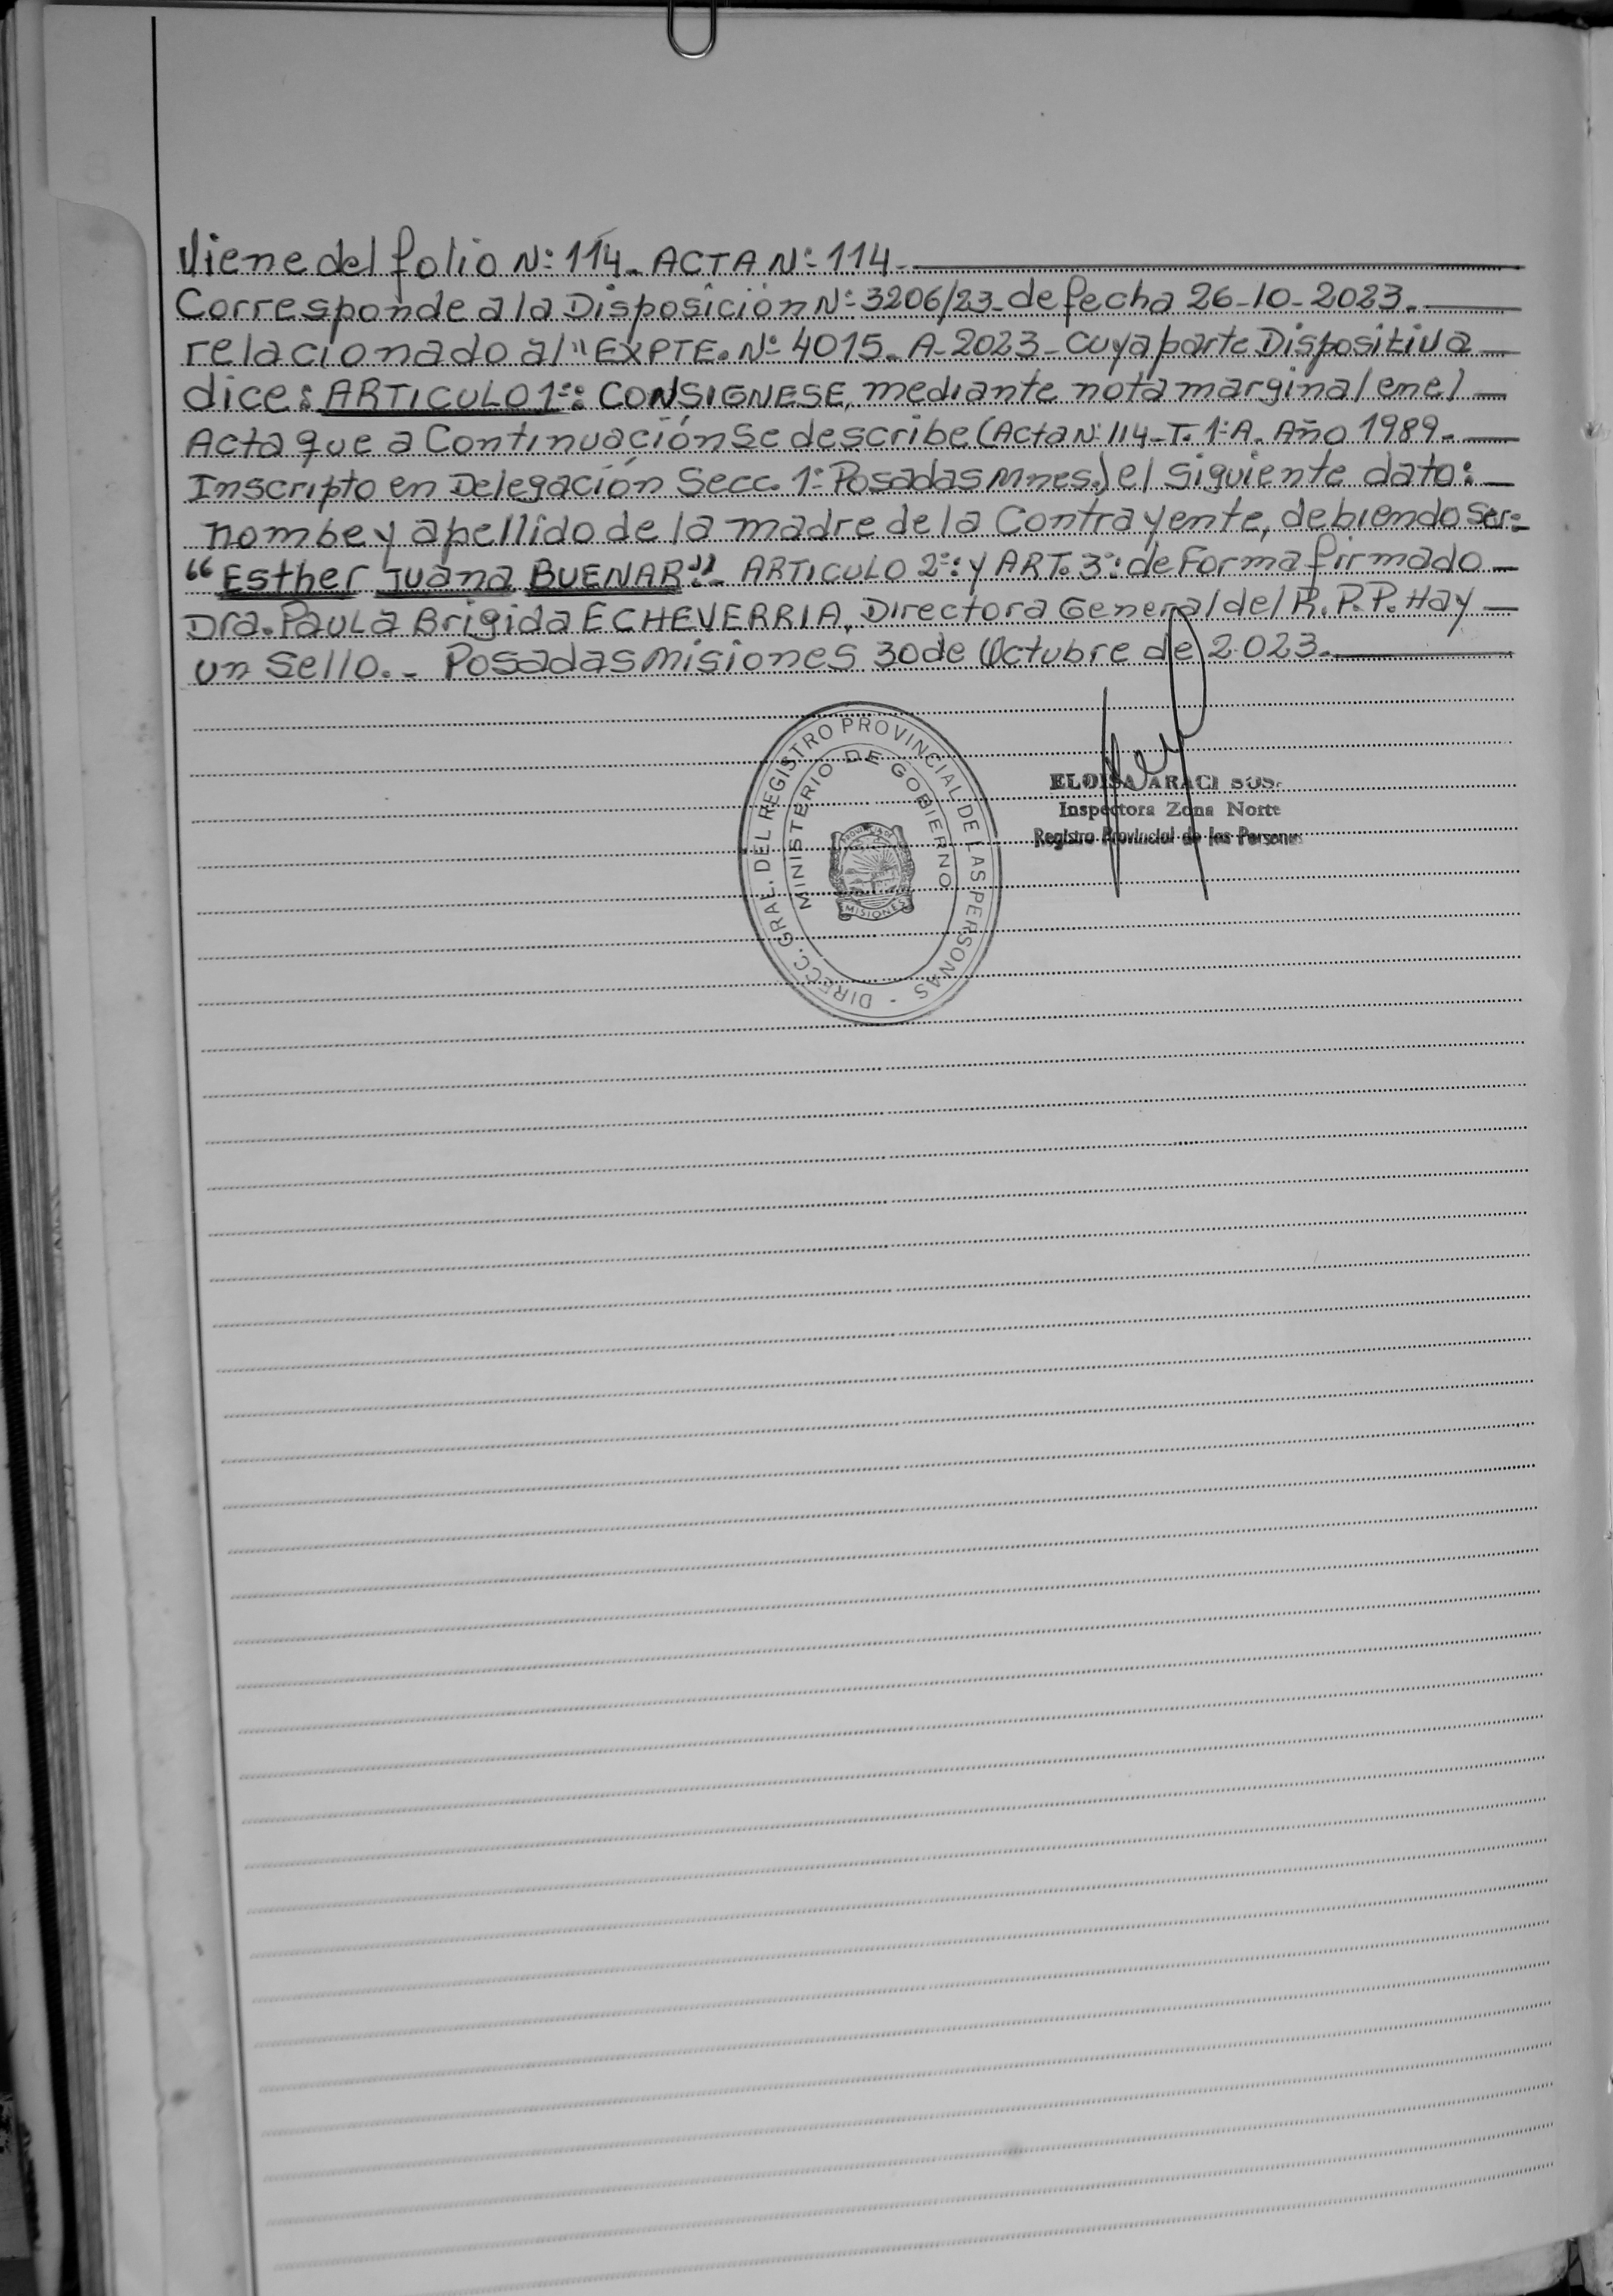 Viene del folio Nº 114_ ACTA Nº 114_
Corresponde a la Disposición Nº 3206/23_ de fecha 26_10_2023._
relacionado al "EXPTE. Nº 4015_A_2023_ cuya parte Dispositiva_
dice: ARTICULO 1º: CONSIGNESE, mediante nota marginal en el_
Acta que a Continuación se describe (Acta Nº 114_T. 1º A. Año 1989._
Inscripto en Delegación Secc. 1º Posadas Mnes.) el siguiente dato:_
nombe y apellido de la madre de la Contrayente, debiendo ser:_
"Esther Juana BUENAR"._ ARTICULO 2º: y ART. 3º: de Forma firmado_
Dra. PAULA Brigida ECHEVERRIA, Directora General del R.P.P. Hay_
un Sello._ Posadas Misiones 30 de Octubre de 2023._
DIRECC. GRAL. DEL REGISTRO PROVINCIAL DE LAS PERSONAS -
MINISTERIO DE GOBIERNO
PROVINCIA DE
MISIONES
ELOISA ARACI
Inspectora Zona Norte
Registro Provincial de las Personas